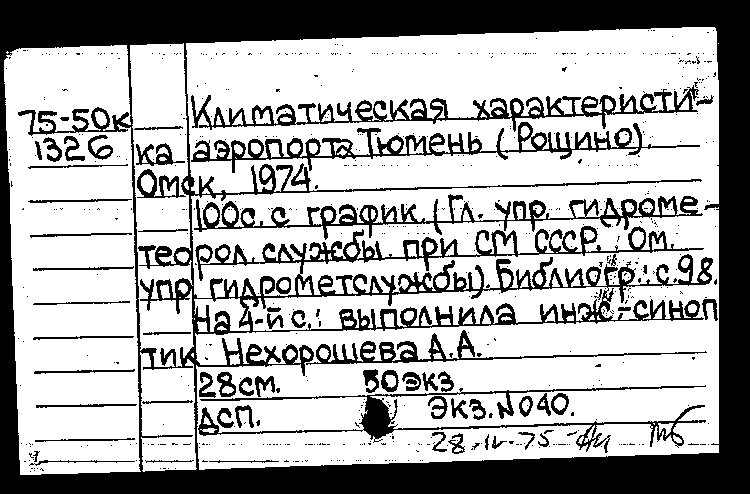 75-50к
1326
Климатическая характеристи-
ка аэропорта Тюмень (Рощино).
Омск, 1974.
100с. с график. (Гл. упр. гидроме-
теорол. службы при СМ СССР. Ом.
упр. гидрометслужбы). Библиогр.: с.98.
На 4-й с.: выполнила инж.-синоп
тик Нехорошева А.А.
28см. 50экз.
ДСП. Экз.№040.
28-IV-75